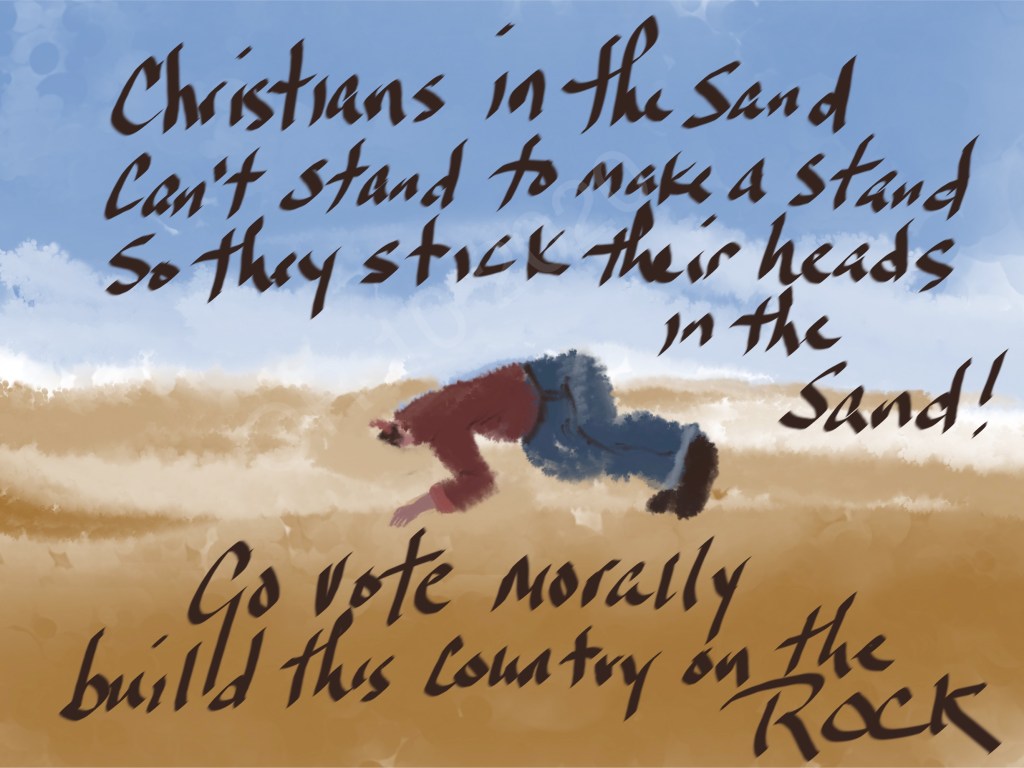 Christians in the Sand
Can't stand to make a stand
So they stick their heads
in the
Sand!
Go vote morally
build this country on the
ROCK